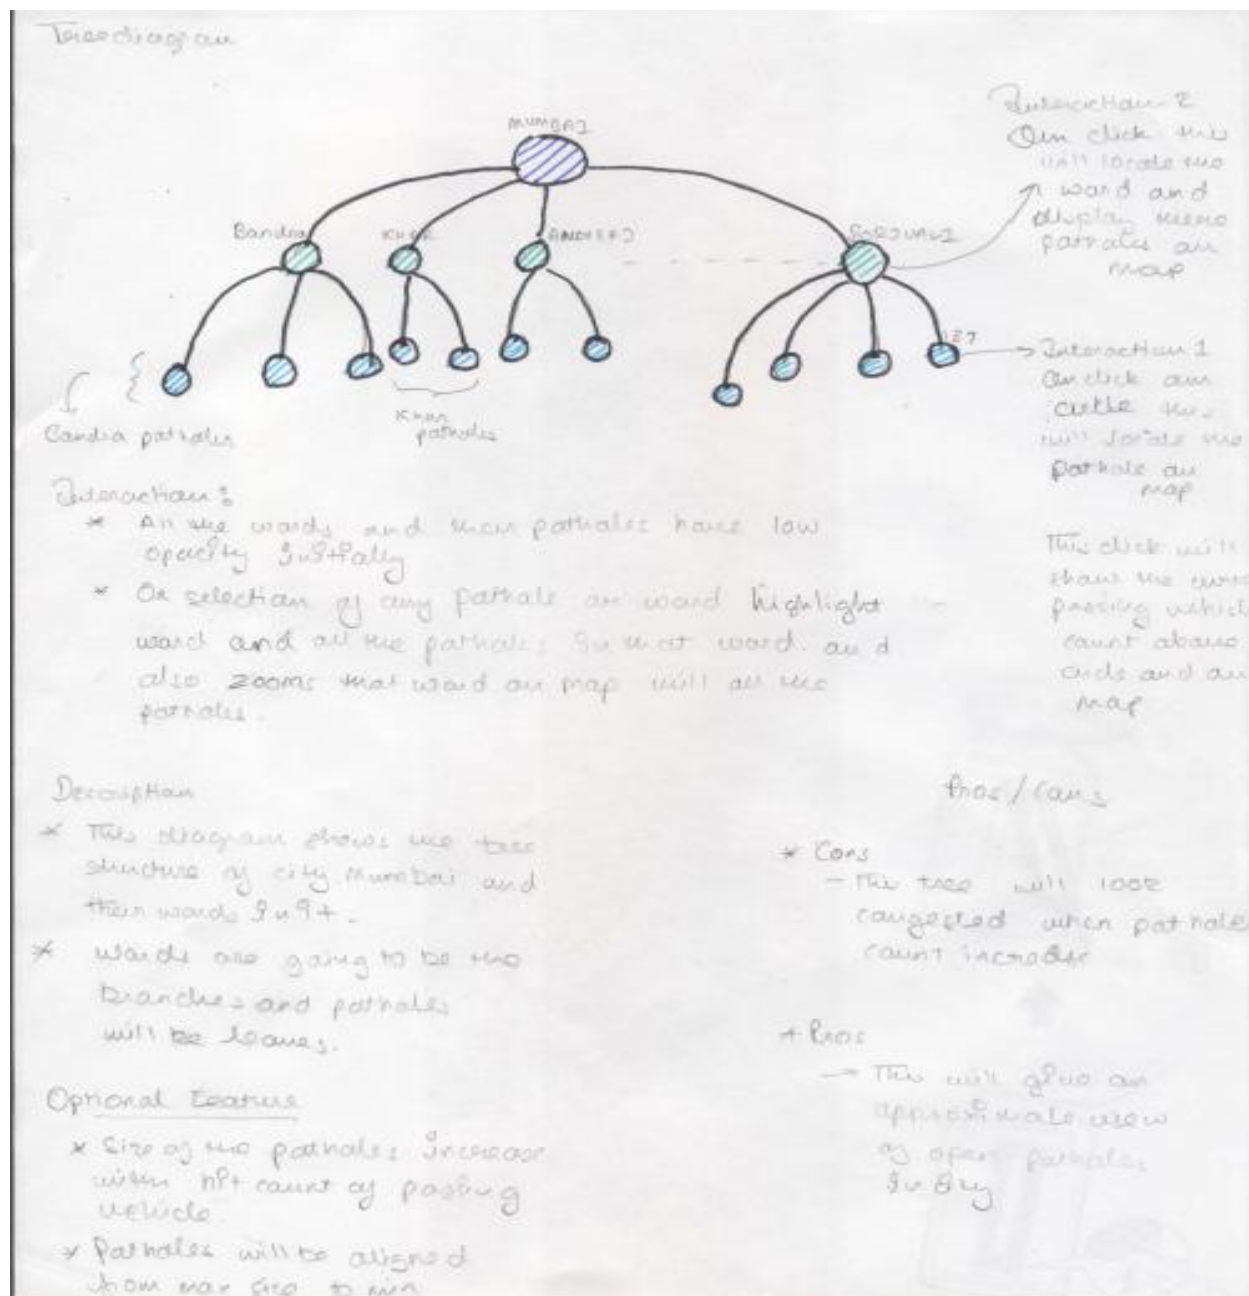 Treediagram
MUMBAI
Bandra
KHAR
ANDHERI
Interaction-2
On click this
will locate the
ward and
display
potholes on
map
Khar
potholes
potholes
Interaction 1
On click on
circle
will locate the
pothole on
map
This click will
show the
passing vehicle
count above
and on
map
Interaction:
* All the wards and their potholes have low
opacity initially
* On selection of any pothole or ward highlight
ward and all the potholes in that ward. and
also zooms that ward on map with all the
potholes.
Description
* This diagram shows the tree
structure of city Mumbai and
their wards in it.
* wards are going to be the
branches and potholes
will be leaves.
Optional Feature
* Size of the potholes increase
with hit count of passing
vehicle.
* Potholes will be aligned
from max size to min
Pros/Cons
* Cons
- This tree will look
congested when pothole
count increase
* Pros
→ This will give an
approximate view
of open potholes
in